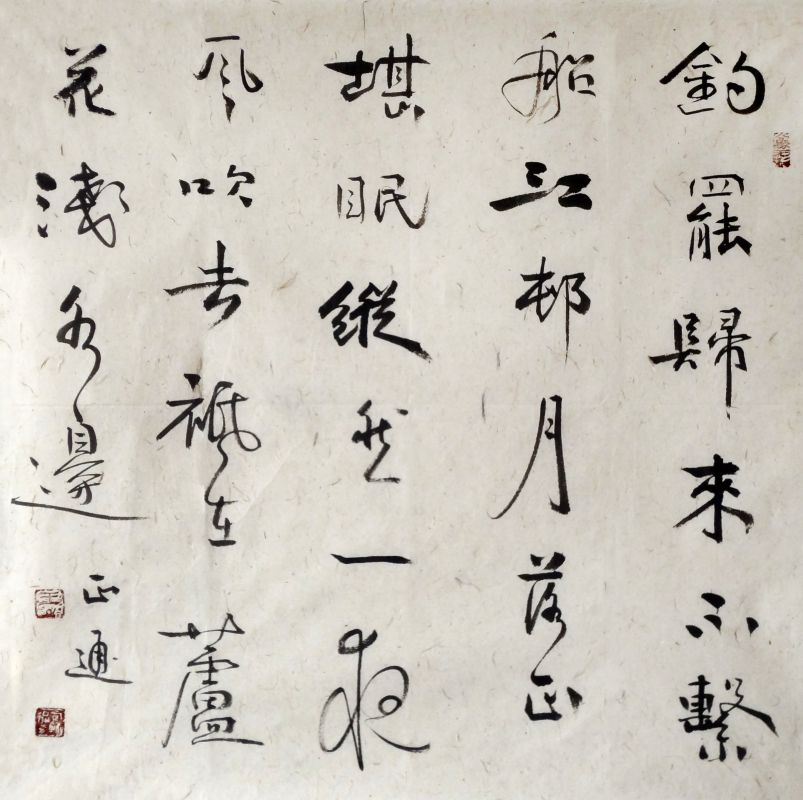 釣罷歸來不繫
船江邨月落正
堪眠縱然一夜
風吹去祗在蘆
花淺水邊
正通